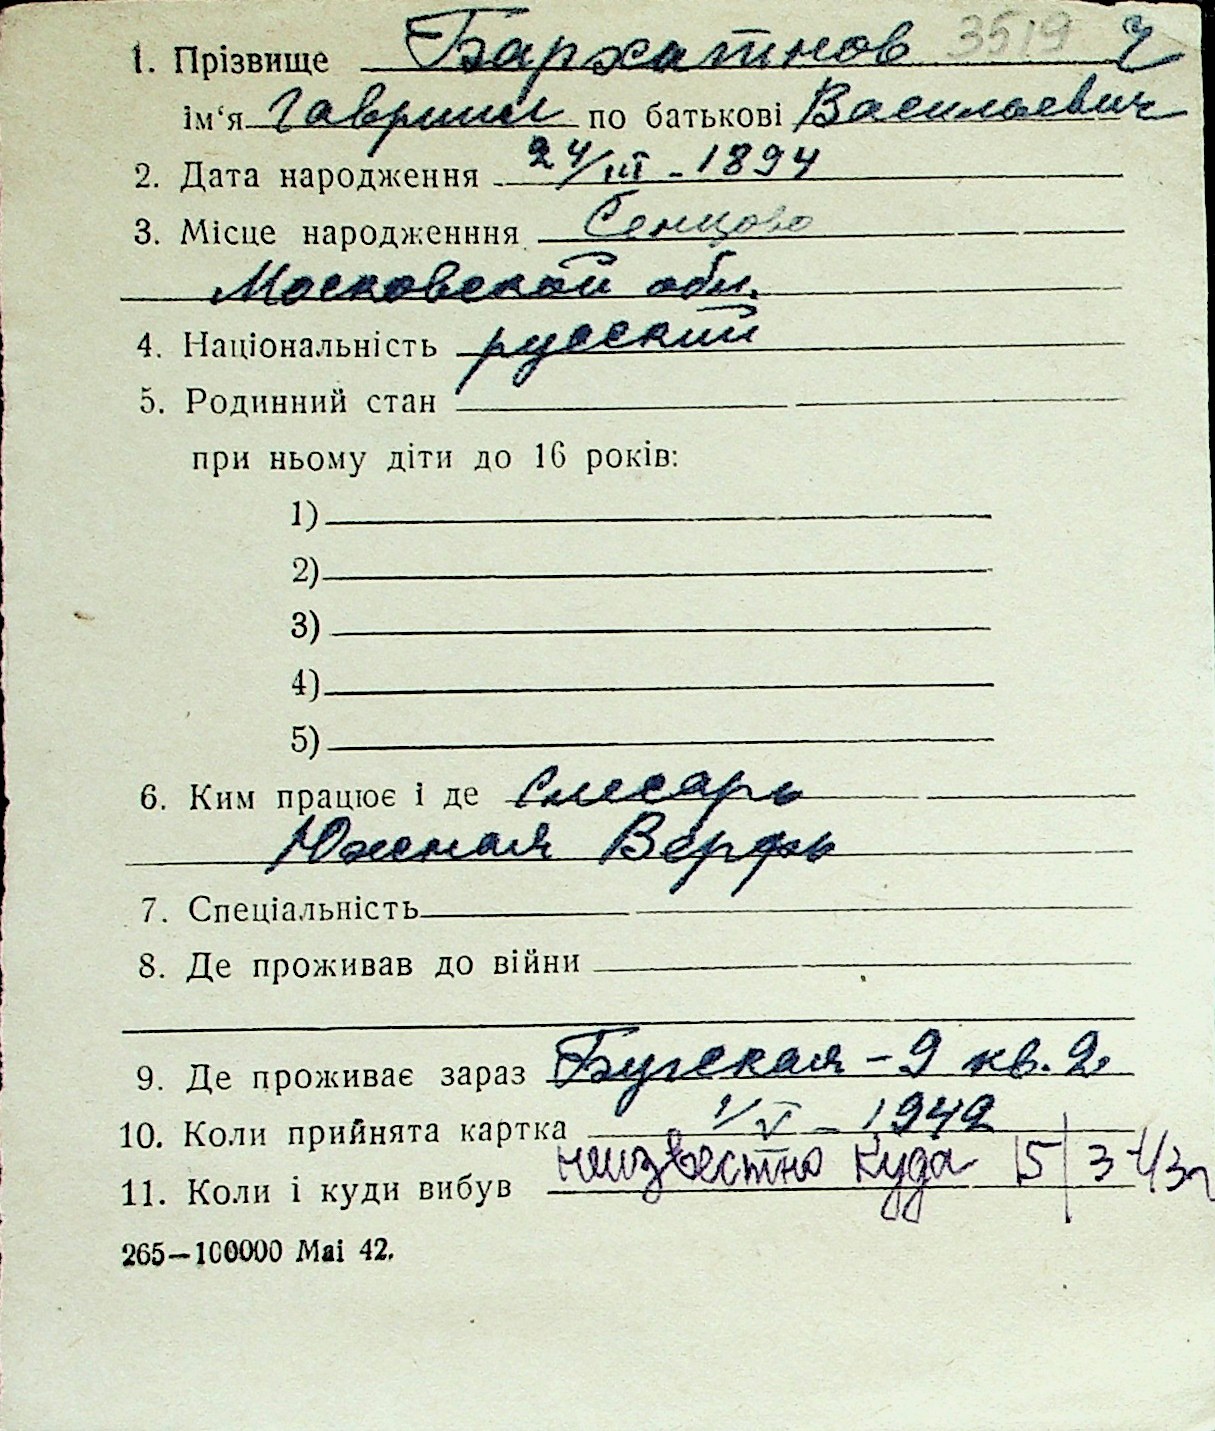 1. Прізвище Бархатнов 3519 Ч
ім‘я Гавриил по батькові Васильевич
2. Дата народження 24/III - 1894
3. Місце народженння Сенцово
Московской обл.
4. Національність русский
5. Родинний стан
при ньому діти до 16 років:
1)
2)
3)
4)
5)
6. Ким працює і де Слесарь
Южная Верфь
7. Спеціальність
8. Де проживав до війни
9. Де проживає зараз Бугская - 9 кв. 2
10. Коли прийнята картка 1/V - 1942
11. Коли і куди вибув неизвестно куда 15
265—100000 Mai 42.